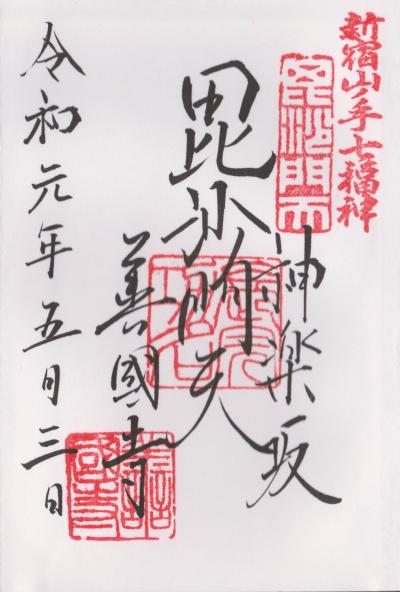 新宿山ノ手七福神
毘沙門天
神楽坂
毘沙門天
善國寺
令和元年五月三日